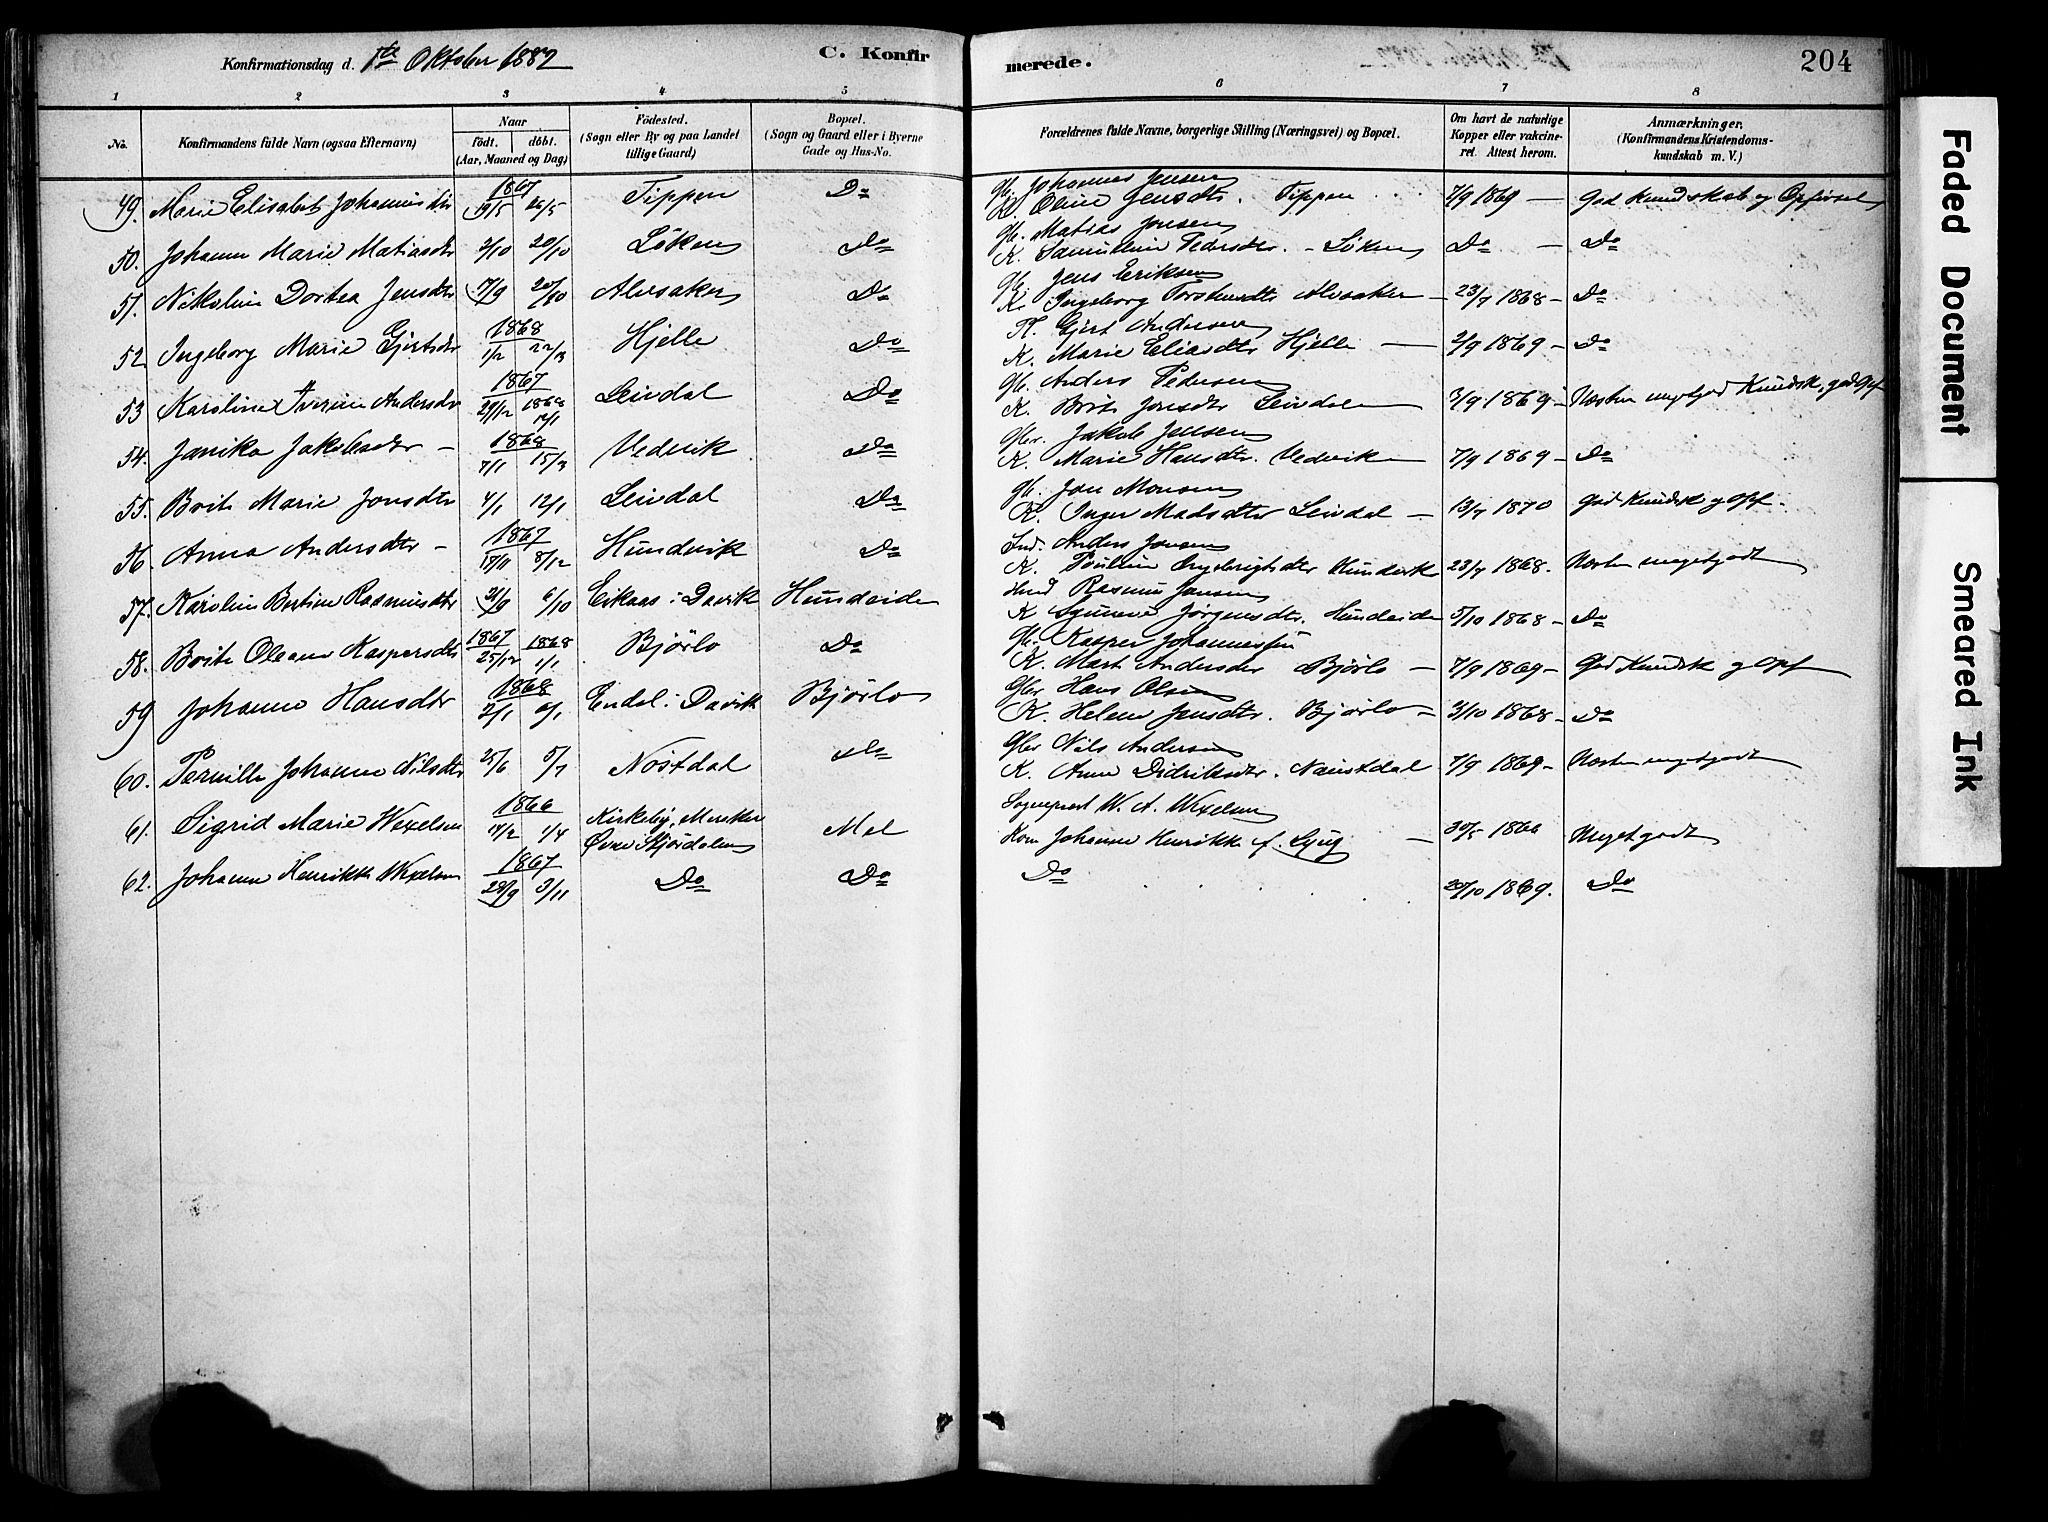 Konfirmationsdag d. 1ste Oktober 1882
C. Konfirmerede.
204
1 2 3 4 5 6 7 8
No.
Konfirmandens fulde Navn (ogsaa Efternavn)
Naar født. døbt. (Aar, Maaned og Dag)
Födested. (Sogn eller By og paa Landet tillige Gaard)
Bopæl. (Sogn og Gaard eller i Byerne Gade og Hus-No.
Forældrenes fulde Navne, borgerlige Stilling (Næringsvei) og Bopæl.
Om havt de naturlige Kopper eller vakcineret. Attest herom.
Anmærkninger. (Konfirmandens Kristendomskundskab m. V.)
49. Marie Elisabet Johannesdtr 1867 19/5 26/5 Tippen Do Gbr. Johannes Jensen K. Oline Jensdtr. Tippen 7/9 1869 – God Kundskab og Opførsel
50. Johanne Marie Matiasdtr 2/10 20/10 Løken Do Gbr. Matias Jonsen K. Samueline Pedersdtr. – Løken Do – Do
51. Nikoline Dortea Jensdtr 17/9 20/10 Alvsaker Do Gbr. Jens Eriksen K. Ingeborg Torstensdtr Alvsaker – 23/7 1868 – Do
52. Ingeborg Marie Gjertsdtr 1868 1/2 22/3 Hjelle Do Pl. Gjert Andersen K. Marie Eliasdtr Hjelle – 2/9 1869 – Do
53 Karoline Iverine Andersdtr 1867 29/12 1868 12/1 Leivdal Do Gbr. Anders Pedersen K. Brite Jonsdtr Leivdal 3/9 1869 – Næsten megetgod Kundsk, god Opf
54. Janika Jakobsdtr – 1868 7/1 15/3 Vedvik Do Gbr. Jakob Jensen K. Marie Hansdtr. Vedvik 7/9 1869 – Do
55. Brite Marie Jonsdtr 4/1 12/1 Leivdal Do Gbr. Jon Monsen K. Inger Madsdtr Leivdal – 13/7 1870 God Kundsk og Opf.
56. Anna Andersdtr – 1867 17/11 8/12 Hundvik Do Ind. Anders Jonsen K. Pouline Ingebrigtsdtr Hundvik 23/7 1868. Næsten megetgodt
57. Karoline Bertine Rasmusdtr 21/9 6/10 Eikaas i Davik Hundeide Hmd Rasmus Jansen K Synneve Jørgensdtr. Hundeide 5/10 1868 – Do
58. Brite Oleane Kaspersdtr 1867 25/12 1868 1/1 Bjørlo Do Gbr. Kasper Johannessen K. Marte Andersdtr Bjørlo – 7/9 1869 – God Kundsk og Opf
59 Johanne Hansdtr 1868 2/1 6/1 Endal i Davik Bjørlo Gbr Hans Olsen K. Helene Jensdtr. Bjørlo – 3/10 1868 – Do
60. Pernille Johanne Nilsdtr 25/6 5/7 Nøstdal Do Gbr Nils Andersen K. Anne Didriksdtr. Naustdal 7/9 1869 – Næsten megetgodt
61. Sigrid Marie Wexelsen 1866 17/2 1/4 Kirkeby, Meraker Øvre Stjørdalen Mel Sogneprest W. A. Wexelsen Kone Johanne Henrikke f. Ljug – 30/5 1866 Megetgodt
62. Johanne Henrikke Wexelsen 1867 28/9 3/11 Do Do Do 20/10 1869. Do
Faded Document
Smeared Ink